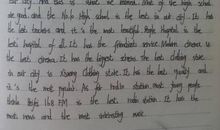 our city. And this is what we learned. Most of the high school
are good. and the No.10 High school is the best in our city. It has
the best teachers and it's the most beautiful. People Hospital is the
best hospital of all. It has the friendliest service. Modern cinema is
the best cinema. It has the biggest screens. the best clothing store
in our city is clothing store. It has the best quality and
it's the most popular. As for radio station most young people
think 16.8 FM is the best radio station. It has the
most news and the most interesting music.